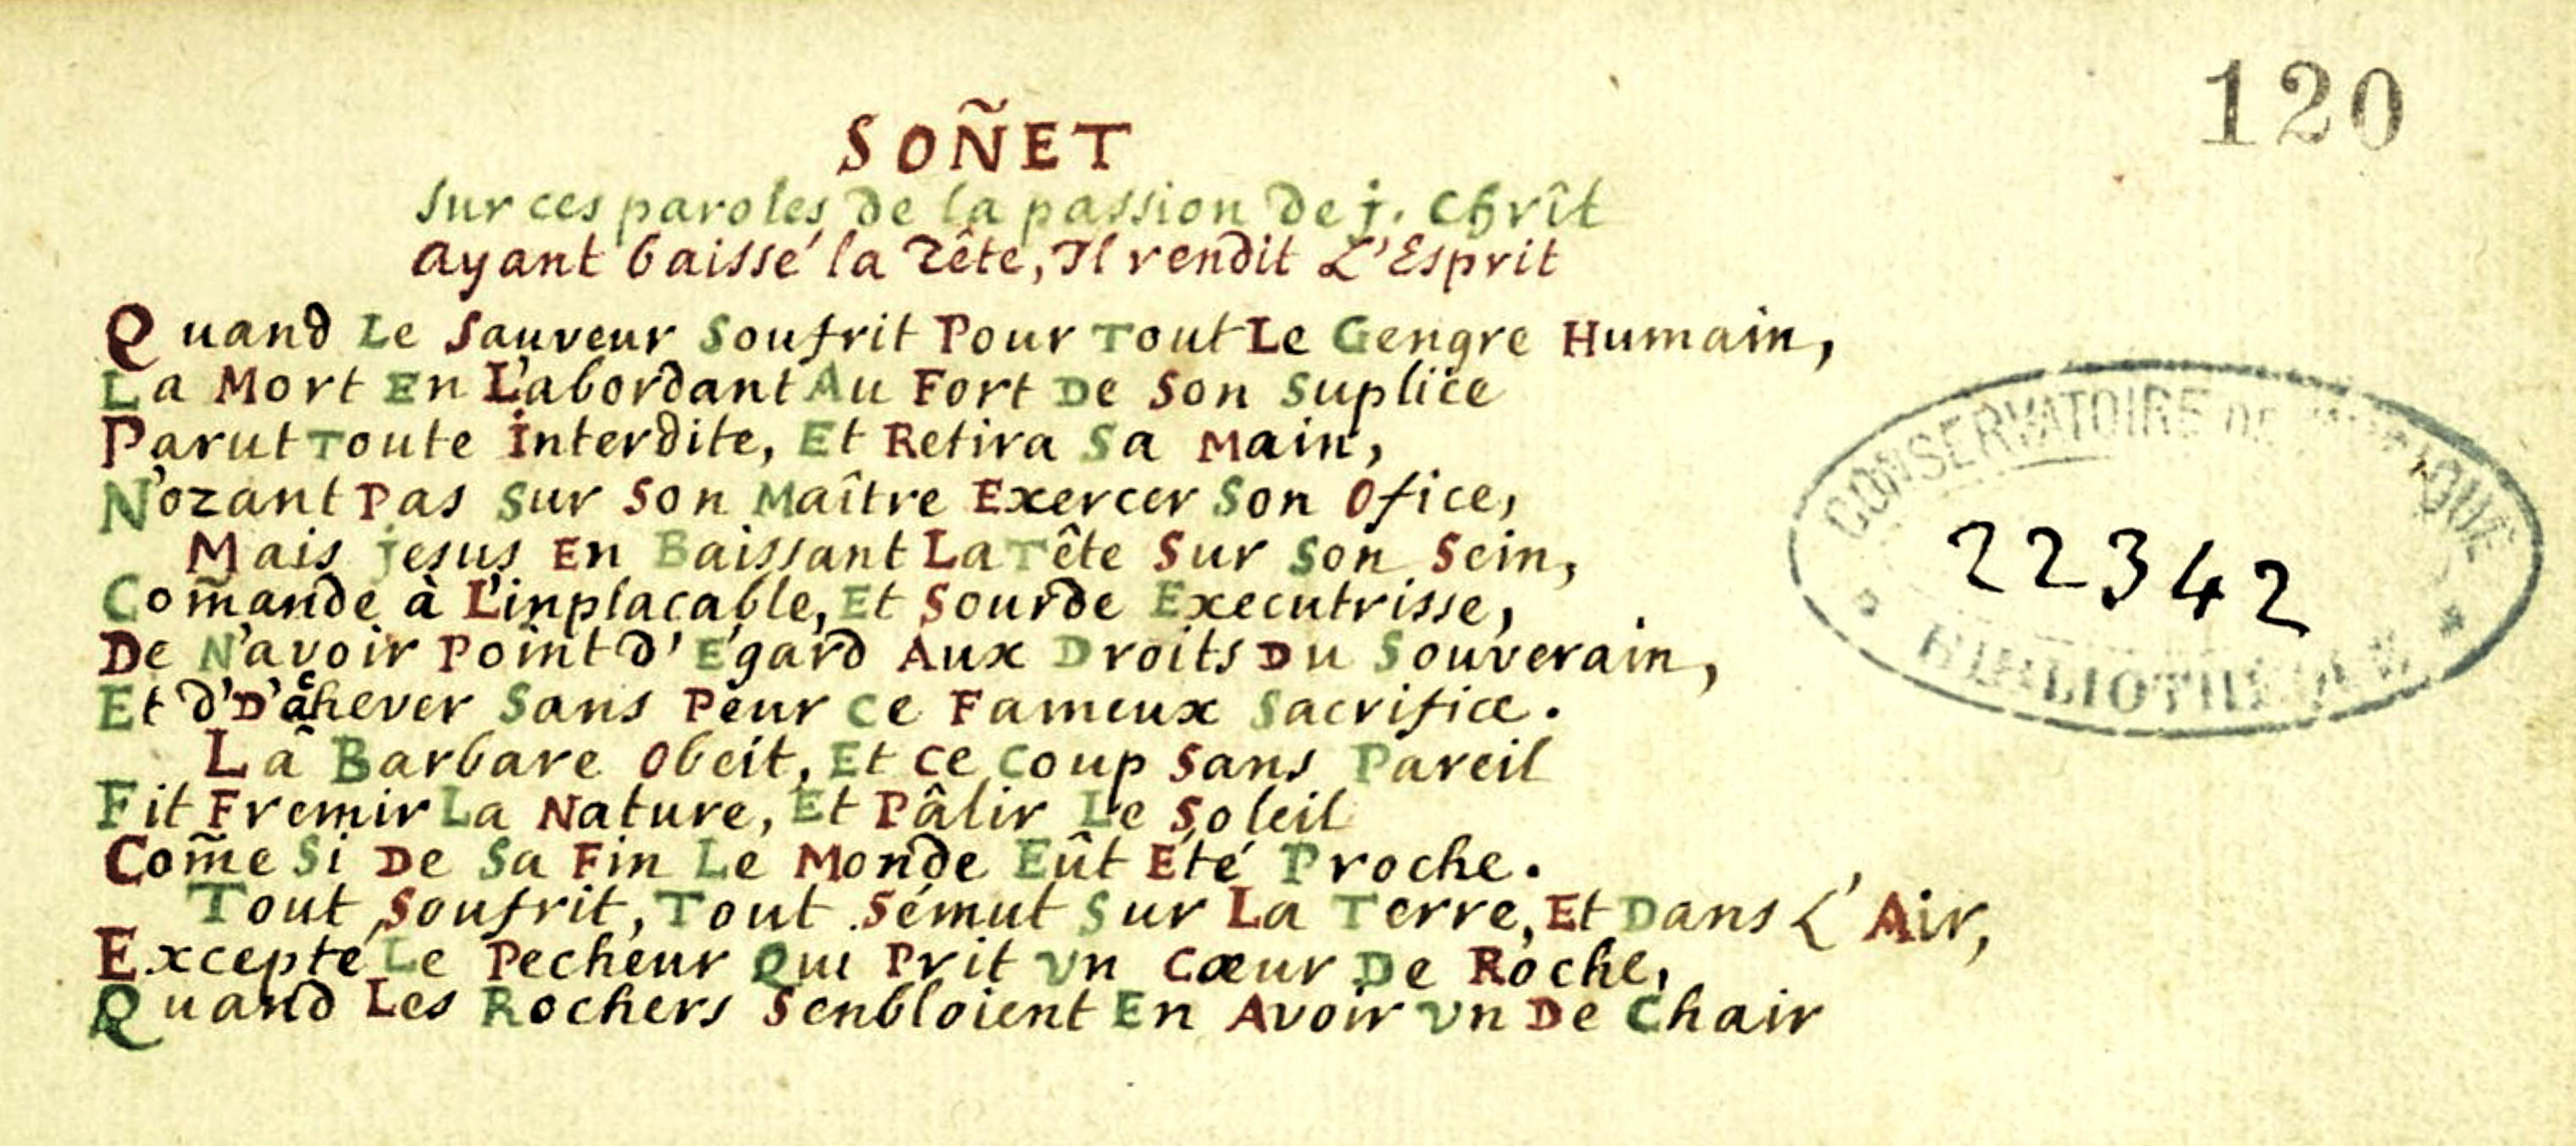 120
SOÑET
Sur ces paroles de la passion de j. Chrît
Ayant baissé la Tête, Il rendit L'Esprit
Quand Le Sauveur Soufrit Pour Tout Le Gengre Humain,
La Mort En L'abordant Au Fort De Son Suplice
Parut Toute Interdite, Et Retira Sa Main,
N'ozant Pas Sur Son Maître Exercer Son Ofice,
Mais jesus En Baissant La Tête Sur Son Sein,
Com̃ande à L'inplacable, Et Sourde Executrisse,
De N'avoir Point d'Egard Aux Droits Du Souverain,
Et d'D'achever Sans Peur Ce Fameux Sacrifice.
La Barbare Obeit, Et Ce Coup Sans Pareil
Fit Fremir La Nature, Et Pâlir Le Soleil
Com̃e Si De Sa Fin Le Monde Eût Eté Proche.
Tout Soufrit, Tout S'émut Sur La Terre, Et Dans L'Air,
Excepté Le Pecheur Qui Prit Vn Cœur De Roche,
Quand Les Rochers Senbloient En Avoir Vn De Chair
CONSERVATOIRE DE MUSIQUE
22342
BIBLIOTHEQUE